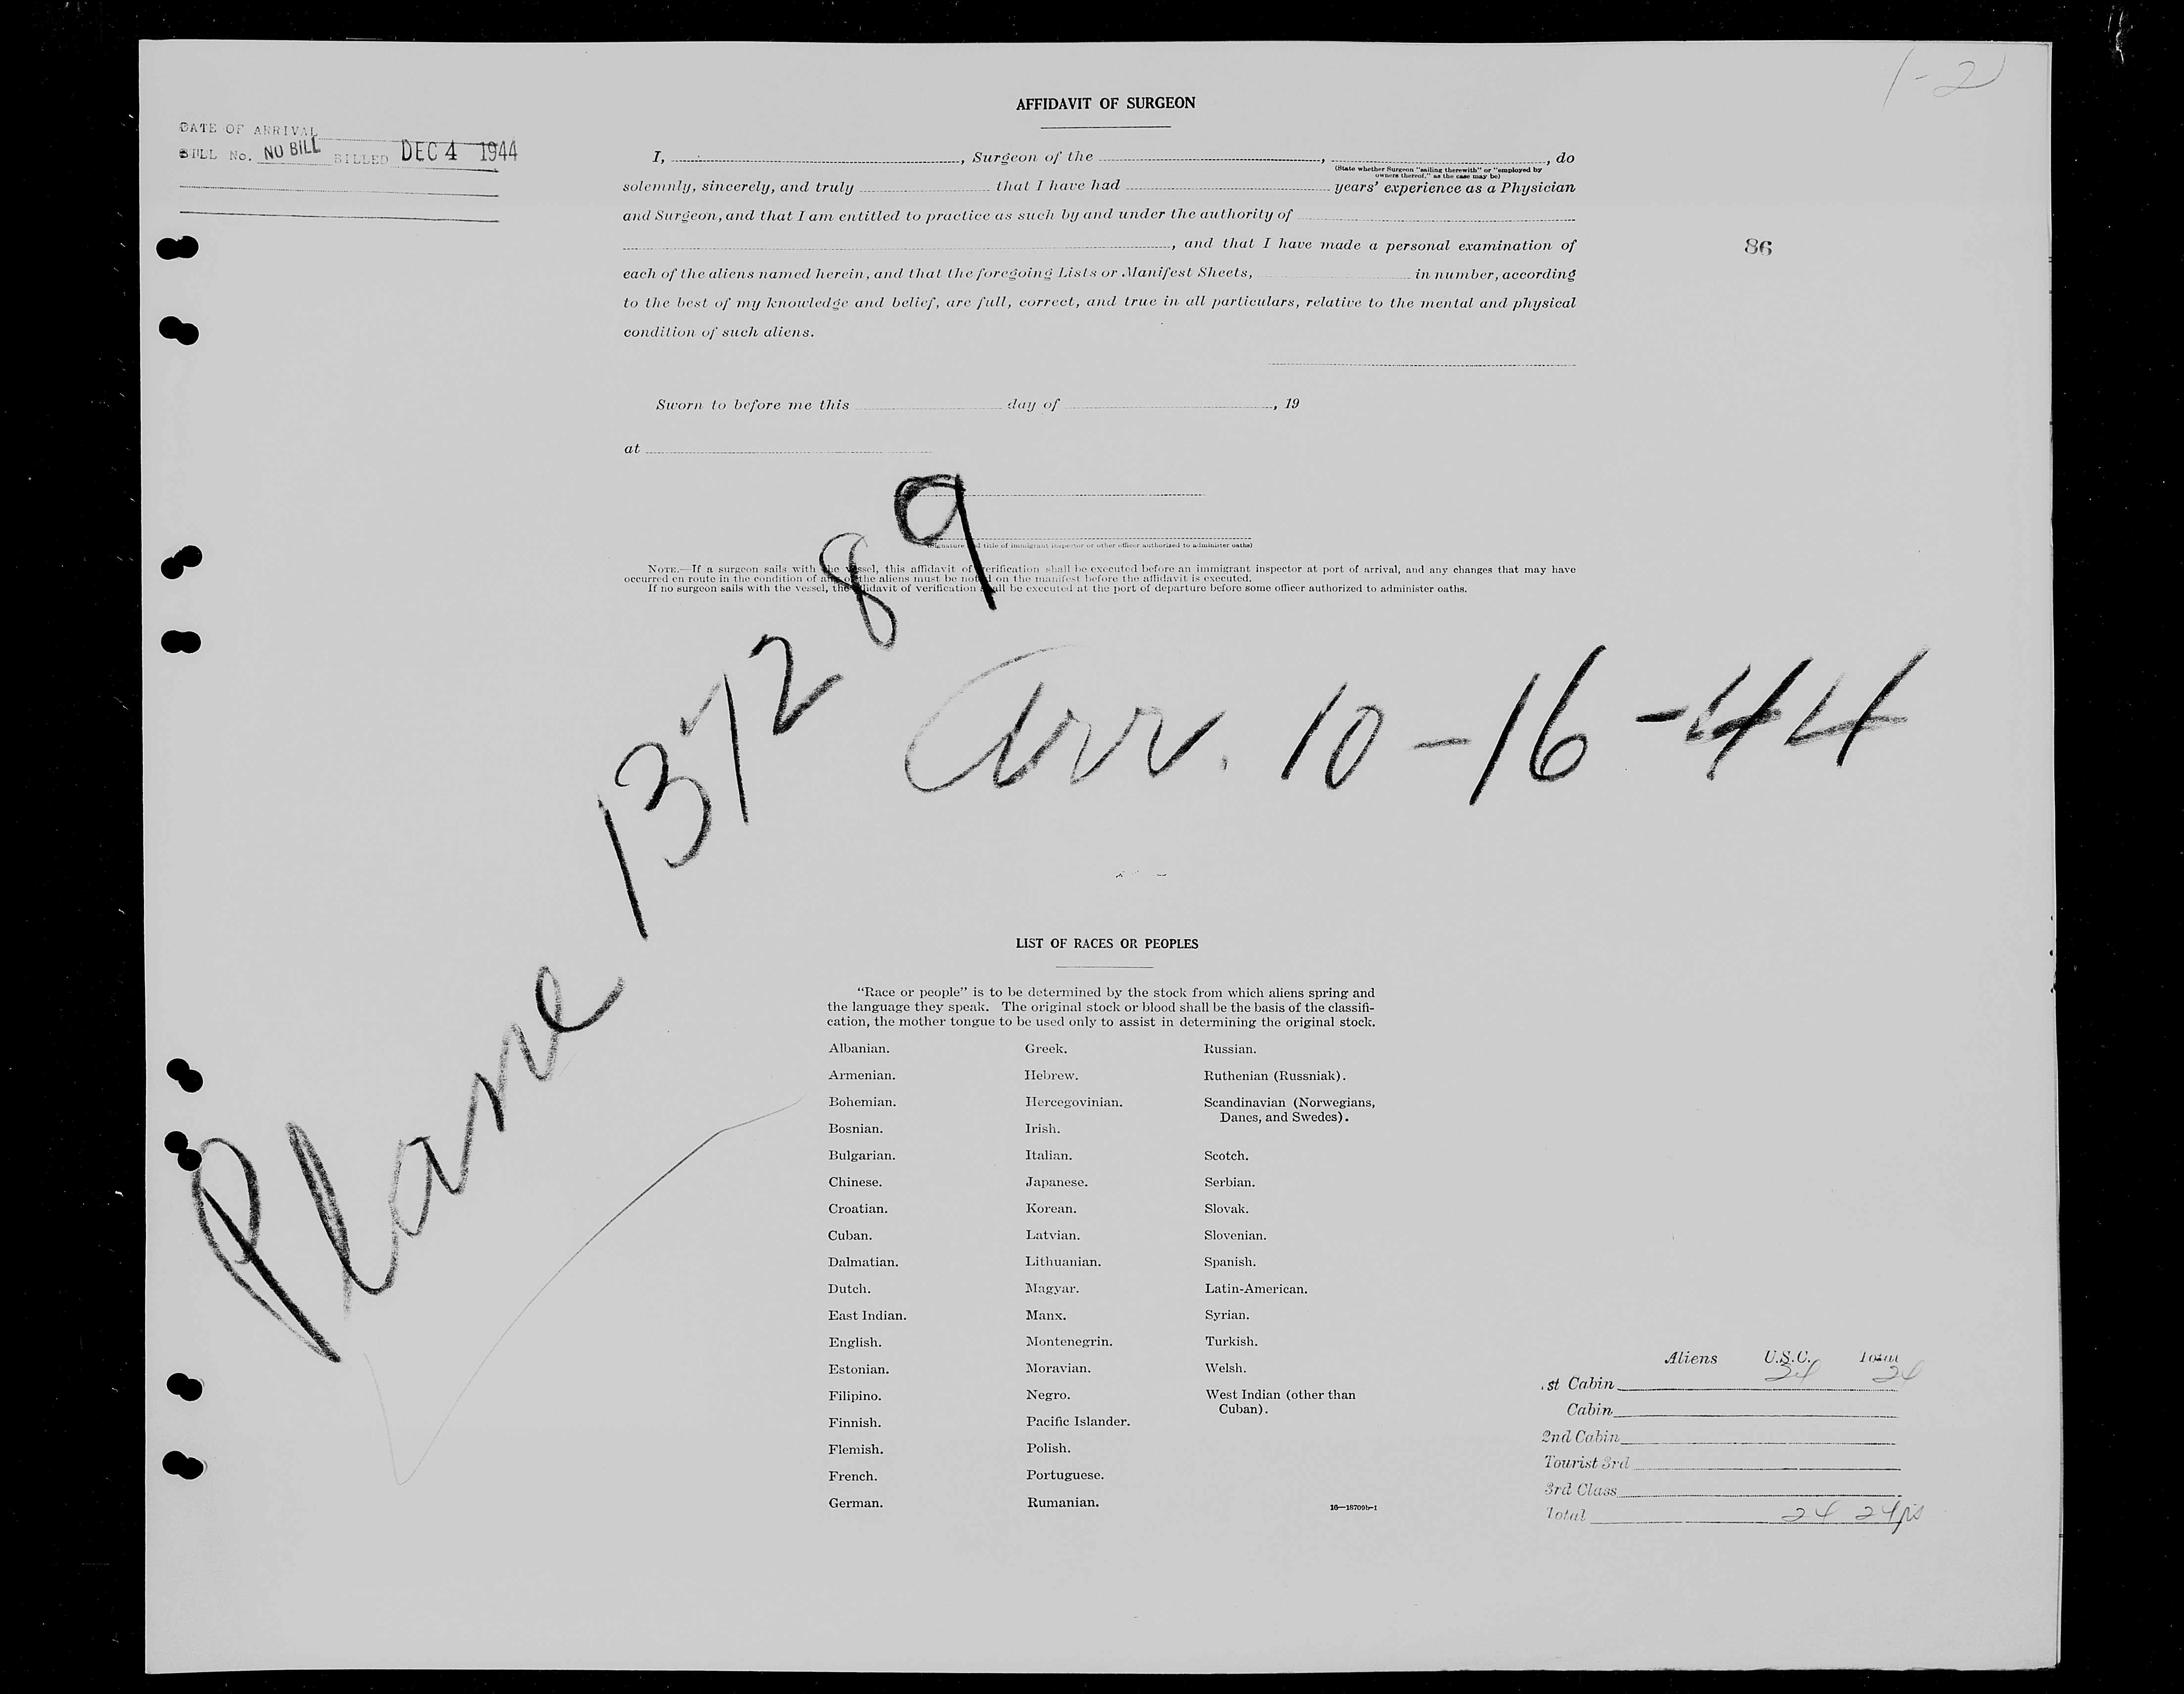 1-2
AFFIDAVIT OF SURGEON
DATE OF ARRIVAL
BILL No. NO BILL BILLED DEC 4 1944
I, , Surgeon of the , , do
(State whether Surgeon "sailing therewith" or "employed by
owners thereof," as the case may be)
solemnly, sincerely, and truly that I have had years' experience as a Physician
and Surgeon, and that I am entitled to practice as such by and under the authority of
, and that I have made a personal examination of
86
each of the aliens named herein, and that the foregoing Lists or Manifest Sheets, in number, according
to the best of my knowledge and belief, are full, correct, and true in all particulars, relative to the mental and physical
condition of such aliens.
Sworn to before me this day of , 19
at
(Signature and title of immigrant inspector or other officer authorized to administer oaths)
NOTE.—If a surgeon sails with the vessel, this affidavit of verification shall be executed before an immigrant inspector at port of arrival, and any changes that may have
occurred en route in the condition of any of the aliens must be noted on the manifest before the affidavit is executed.
If no surgeon sails with the vessel, the affidavit of verification shall be executed at the port of departure before some officer authorized to administer oaths.
Plane 137289
Arr. 10-16-44
LIST OF RACES OR PEOPLES
"Race or people" is to be determined by the stock from which aliens spring and
the language they speak. The original stock or blood shall be the basis of the classifi-
cation, the mother tongue to be used only to assist in determining the original stock.
Albanian.
Armenian.
Bohemian.
Bosnian.
Bulgarian.
Chinese.
Croatian.
Cuban.
Dalmatian.
Dutch.
East Indian.
English.
Estonian.
Filipino.
Finnish.
Flemish.
French.
German.
Greek.
Hebrew.
Hercegovinian.
Irish.
Italian.
Japanese.
Korean.
Latvian.
Lithuanian.
Magyar.
Manx.
Montenegrin.
Moravian.
Negro.
Pacific Islander.
Polish.
Portuguese.
Rumanian.
Russian.
Ruthenian (Russniak).
Scandinavian (Norwegians,
Danes, and Swedes).
Scotch.
Serbian.
Slovak.
Slovenian.
Spanish.
Latin-American.
Syrian.
Turkish.
Welsh.
West Indian (other than
Cuban).
16—18709b-1
Aliens U.S.C. Total
1st Cabin 24 24
Cabin
2nd Cabin
Tourist 3rd
3rd Class
Total 24 24